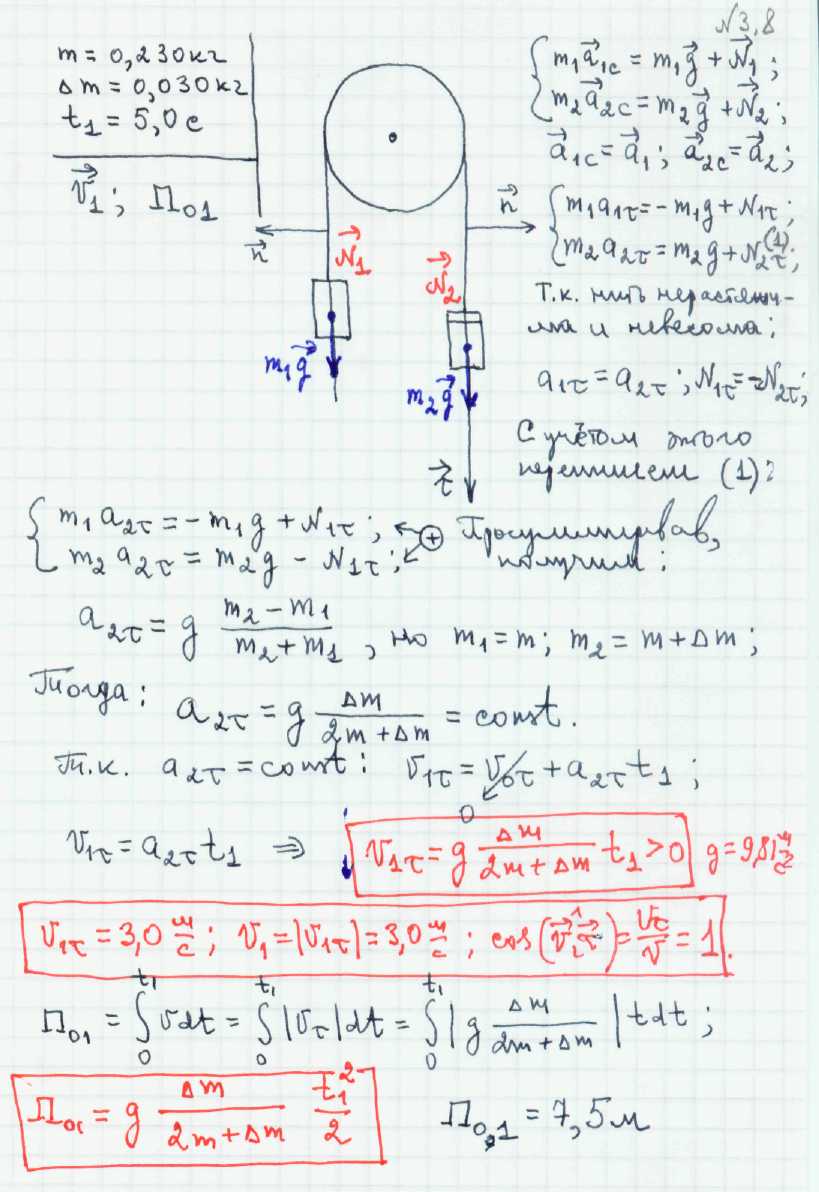 N3,8
m = 0,230 кг
Δm = 0,030 кг
t₁ = 5,0 с
v⃗₁; П₀₁
n⃗
N⃗₁
m₁g⃗
n⃗
N⃗₂
m₂g⃗
τ⃗
{ m₁a⃗₁c = m₁g⃗ + N⃗₁;
m₂a⃗₂c = m₂g⃗ + N⃗₂;
a⃗₁c = a⃗₁; a⃗₂c = a⃗₂;
{ m₁a₁τ = - m₁g + N₁τ;
m₂a₂τ = m₂g + N₂τ; (1)
Т.к. нить нерастяжи-
ма и невесома:
a₁τ = a₂τ; N₁τ = -N₂τ;
С учётом этого
перепишем (1):
{ m₁a₂τ = - m₁g + N₁τ;
m₂a₂τ = m₂g - N₁τ; ⊕ Просуммировав,
получим:
a₂τ = g (m₂ - m₁)/(m₂ + m₁), но m₁ = m; m₂ = m + Δm;
Тогда: a₂τ = g Δm/(2m + Δm) = const.
Т.к. a₂τ = const: v₁τ = v₀τ + a₂τ t₁;
0
v₁τ = a₂τ t₁ ⇒ v₁τ = g Δm/(2m + Δm) t₁ > 0 g = 9,81 м/с²
v₁τ = 3,0 м/с; v₁ = |v₁τ| = 3,0 м/с; cos(v⃗₁^τ⃗) = vτ/v = 1.
П₀₁ = ∫₀^t₁ vdt = ∫₀^t₁ |vτ|dt = ∫₀^t₁ |g Δm/(2m + Δm)| t dt;
П₀₁ = g Δm/(2m + Δm) t₁²/2
П₀,₁ = 7,5 м